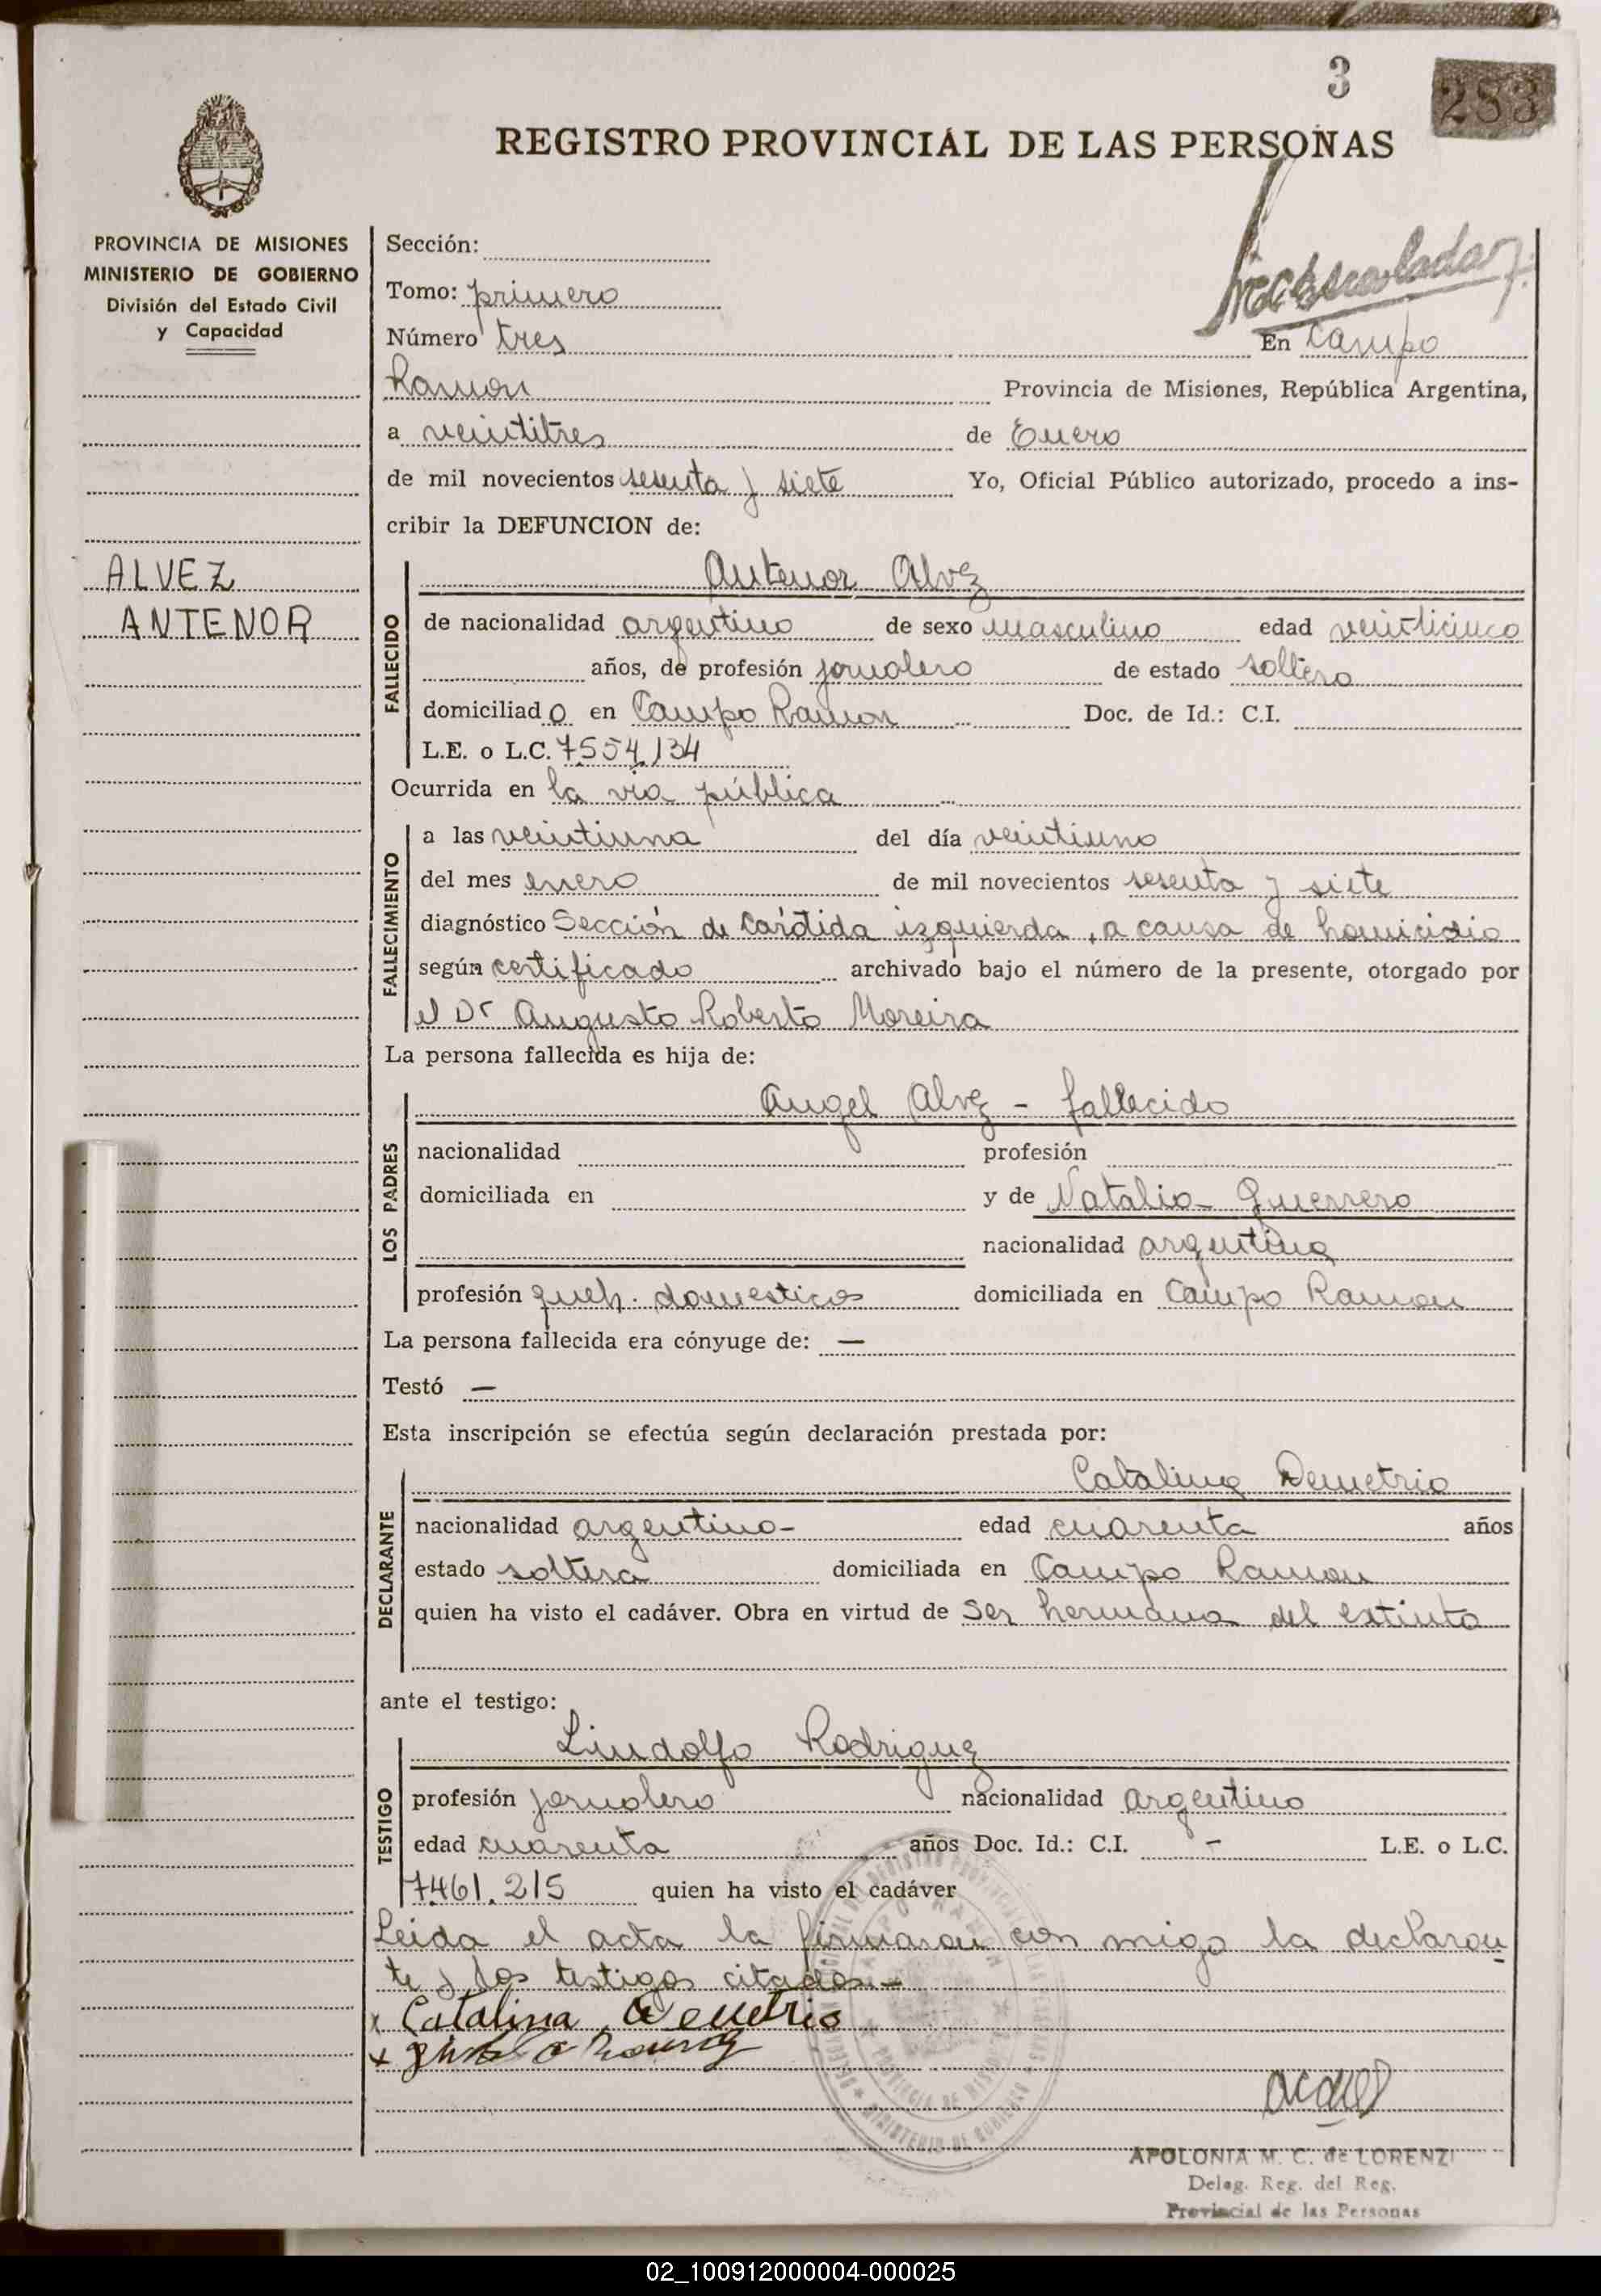 3
283
REGISTRO PROVINCIAL DE LAS PERSONAS
PROVINCIA DE MISIONES
MINISTERIO DE GOBIERNO
División del Estado Civil
y Capacidad
ALVEZ
ANTENOR
Sección:
Tomo: primero
Número tres En Campo
Ramon Provincia de Misiones, República Argentina,
a veintitres de Enero
de mil novecientos sesenta y siete Yo, Oficial Público autorizado, procedo a ins-
cribir la DEFUNCION de:
FALLECIDO
Antenor Alvez
de nacionalidad argentino de sexo masculino edad veinticinco
años, de profesión jornalero de estado soltero
domiciliado en Campo Ramon Doc. de Id.: C.I.
L.E. o L.C. 7554.134
Ocurrida en la via pública
FALLECIMIENTO
a las veintiuna del día veintiuno
del mes enero de mil novecientos sesenta y siete
diagnóstico Sección de Carótida izquierda, a causa de homicidio
según certificado archivado bajo el número de la presente, otorgado por
el Dr Augusto Roberto Moreira
La persona fallecida es hija de:
LOS PADRES
Angel Alvez - fallecido
nacionalidad profesión
domiciliada en y de Natalia Guerrero
nacionalidad argentina
profesión queh. domesticos domiciliada en Campo Ramon
La persona fallecida era cónyuge de: —
Testó —
Esta inscripción se efectúa según declaración prestada por:
DECLARANTE
Catalina Demetrio
nacionalidad argentino- edad cuarenta años
estado soltera domiciliada en Campo Ramon
quien ha visto el cadáver. Obra en virtud de ser hermana del extinto
ante el testigo:
TESTIGO
Lindolfo Rodriguez
profesión jornalero nacionalidad argentino
edad cuarenta años Doc. Id.: C.I. - L.E. o L.C.
7461.215 quien ha visto el cadáver
Leida el acta la firmaron con migo la declaran-
te y los testigos citados.-
x Catalina Demetrio
x
APOLONIA M. C. de LORENZI
Deleg. Reg. del Reg.
Provincial de las Personas
02_100912000004-000025